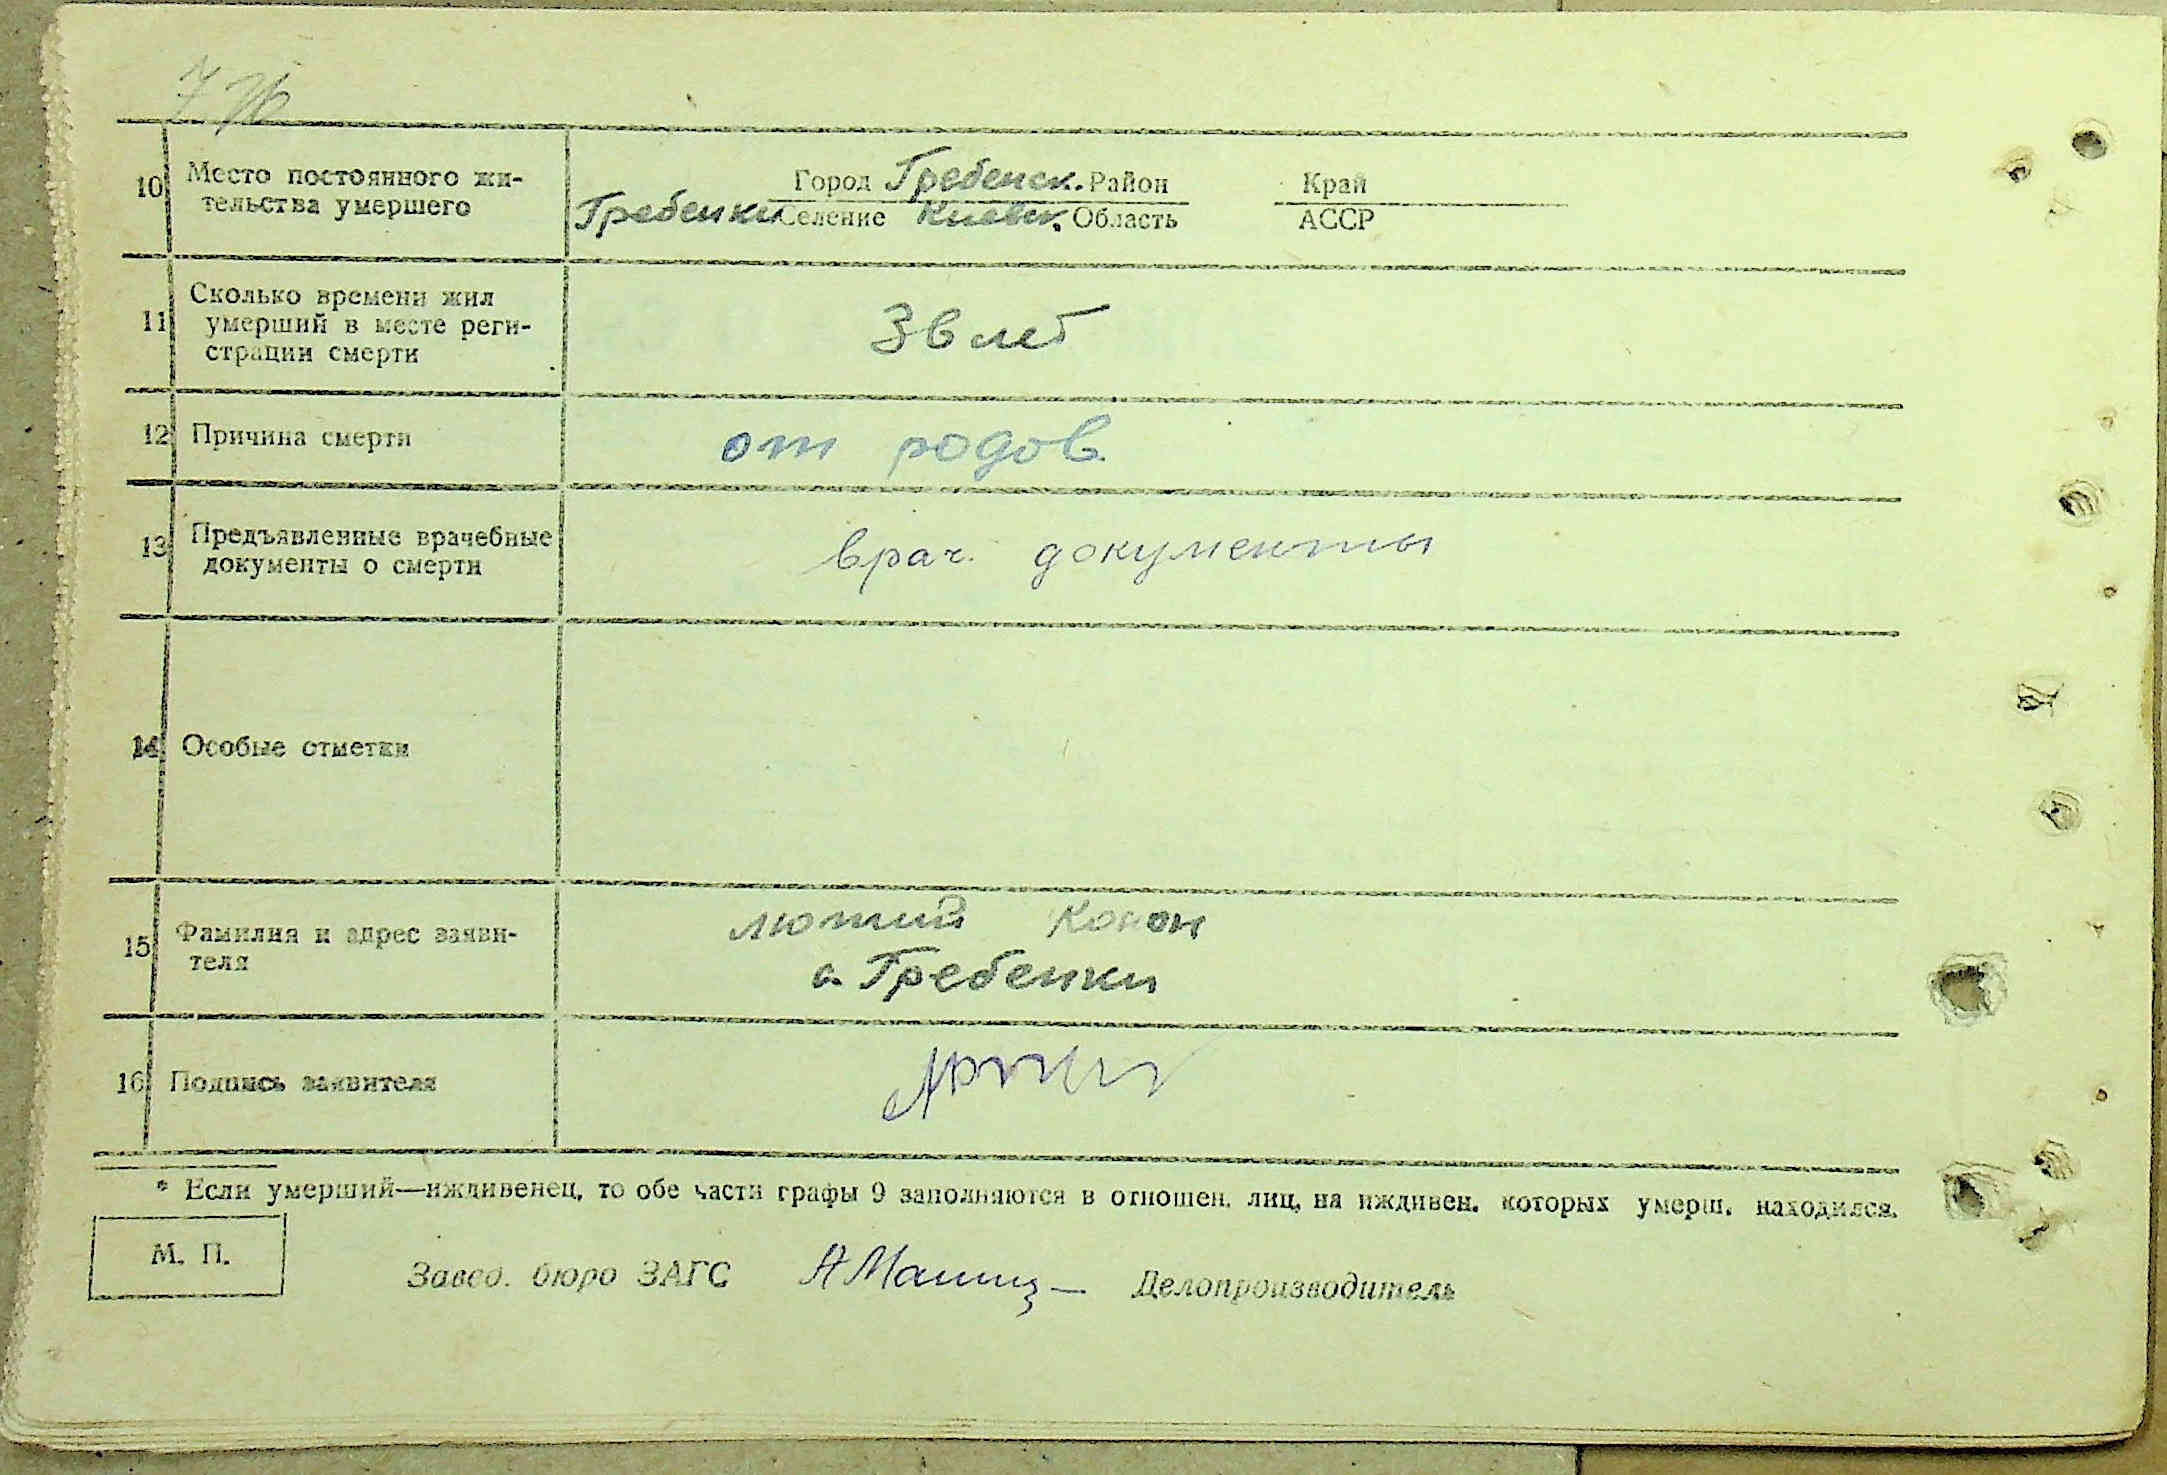 10 Место постоянного жи-
тельства умершего
Город Гребенск. Район Край
Гребенки Селение Киевск. Область АССР
11 Сколько времени жил
умерший в месте реги-
страции смерти
36 лет
12 Причина смерти
от родов.
13 Предъявленные врачебные
документы о смерти
врач. документы
14 Особые отметки
15 Фамилия и адрес заяви-
теля
лютий Конон
с. Гребенки
16 Подпись заявителя
* Если умерший—иждивенец, то обе части графы 9 заполняются в отношен. лиц, на иждивен. которых умерш. находился.
М. П.
Завед. бюро ЗАГС Делопроизводитель